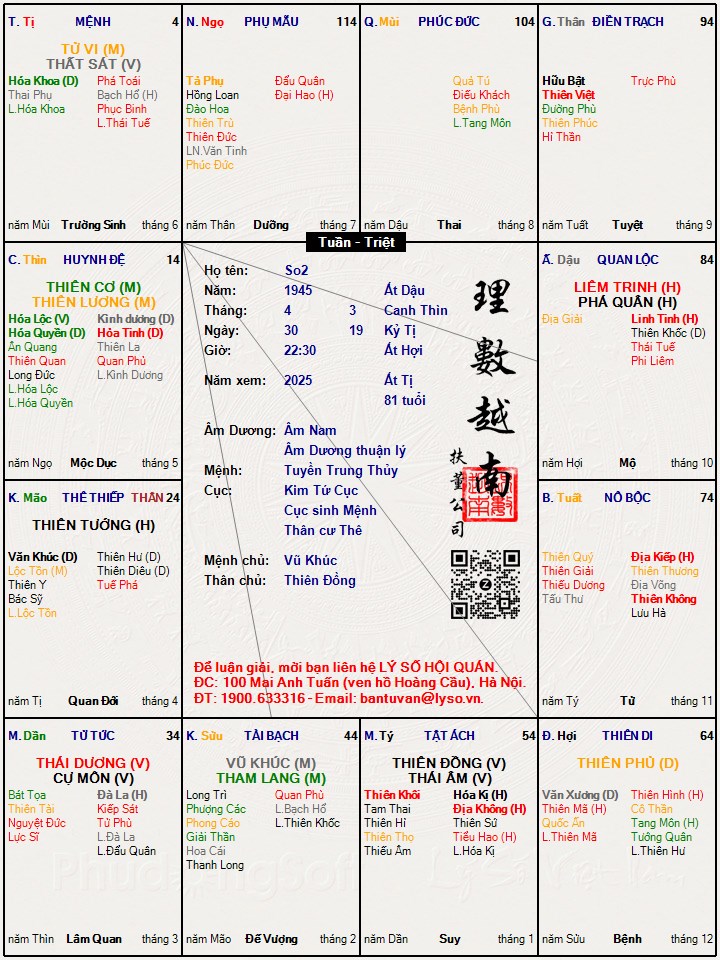 T. Tị MỆNH 4
TỬ VI (M)
THẤT SÁT (V)
Hóa Khoa (D) Phá Toái
Thai Phụ Bạch Hổ (H)
L.Hóa Khoa Phục Binh
L.Thái Tuế
năm Mùi Trường Sinh tháng 6
N. Ngọ PHỤ MẪU 114
Tả Phụ Đẩu Quân
Hồng Loan Đại Hao (H)
Đào Hoa
Thiên Trù
Thiên Đức
LN.Văn Tinh
Phúc Đức
năm Thân Dưỡng tháng 7
Q. Mùi PHÚC ĐỨC 104
Quả Tú
Điếu Khách
Bệnh Phù
L.Tang Môn
năm Dậu Thai tháng 8
G. Thân ĐIỀN TRẠCH 94
Hữu Bật Trực Phù
Thiên Việt
Đường Phù
Thiên Phúc
Hỉ Thần
năm Tuất Tuyệt tháng 9
Tuần - Triệt
C. Thìn HUYNH ĐỆ 14
THIÊN CƠ (M)
THIÊN LƯƠNG (M)
Hóa Lộc (V) Kình dương (D)
Hóa Quyền (D) Hỏa Tinh (D)
Ân Quang Thiên La
Thiên Quan Quan Phủ
Long Đức L.Kình Dương
L.Hóa Lộc
L.Hóa Quyền
năm Ngọ Mộc Dục tháng 5
Họ tên: So2
Năm: 1945 Ất Dậu
Tháng: 4 3 Canh Thìn
Ngày: 30 19 Kỷ Tị
Giờ: 22:30 Ất Hợi
Năm xem: 2025 Ất Tị
81 tuổi
Âm Dương: Âm Nam
Âm Dương thuận lý
Mệnh: Tuyền Trung Thủy
Cục: Kim Tứ Cục
Cục sinh Mệnh
Thân cư Thê
Mệnh chủ: Vũ Khúc
Thân chủ: Thiên Đồng
理數越南
扶董公司
Để luận giải, mời bạn liên hệ LÝ SỐ HỘI QUÁN.
ĐC: 100 Mai Anh Tuấn (ven hồ Hoàng Cầu), Hà Nội.
ĐT: 1900.633316 - Email: bantuvan@lyso.vn.
Ấ. Dậu QUAN LỘC 84
LIÊM TRINH (H)
PHÁ QUÂN (H)
Địa Giải Linh Tinh (H)
Thiên Khốc (D)
Thái Tuế
Phi Liêm
năm Hợi Mộ tháng 10
K. Mão THÊ THIẾP THÂN 24
THIÊN TƯỚNG (H)
Văn Khúc (D) Thiên Hư (D)
Lộc Tồn (M) Thiên Diêu (D)
Thiên Y Tuế Phá
Bác Sỹ
L.Lộc Tồn
năm Tị Quan Đới tháng 4
B. Tuất NÔ BỘC 74
Thiên Quý Địa Kiếp (H)
Thiên Giải Thiên Thương
Thiếu Dương Địa Võng
Tấu Thư Thiên Không
Lưu Hà
năm Tý Tử tháng 11
M. Dần TỬ TỨC 34
THÁI DƯƠNG (V)
CỰ MÔN (V)
Bát Tọa Đà La (H)
Thiên Tài Kiếp Sát
Nguyệt Đức Tử Phù
Lực Sĩ L.Đà La
L.Đẩu Quân
năm Thìn Lâm Quan tháng 3
K. Sửu TÀI BẠCH 44
VŨ KHÚC (M)
THAM LANG (M)
Long Trì Quan Phù
Phượng Các L.Bạch Hổ
Phong Cáo L.Thiên Khốc
Giải Thần
Hoa Cái
Thanh Long
năm Mão Đế Vượng tháng 2
M. Tý TẬT ÁCH 54
THIÊN ĐỒNG (V)
THÁI ÂM (V)
Thiên Khôi Hóa Kị (H)
Tam Thai Địa Không (H)
Thiên Hỉ Thiên Sứ
Thiên Thọ Tiểu Hao (H)
Thiếu Âm L.Hóa Kị
năm Dần Suy tháng 1
Đ. Hợi THIÊN DI 64
THIÊN PHỦ (D)
Văn Xương (D) Thiên Hình (H)
Thiên Mã (H) Cô Thần
Quốc Ấn Tang Môn (H)
L.Thiên Mã Tướng Quân
L.Thiên Hư
năm Sửu Bệnh tháng 12